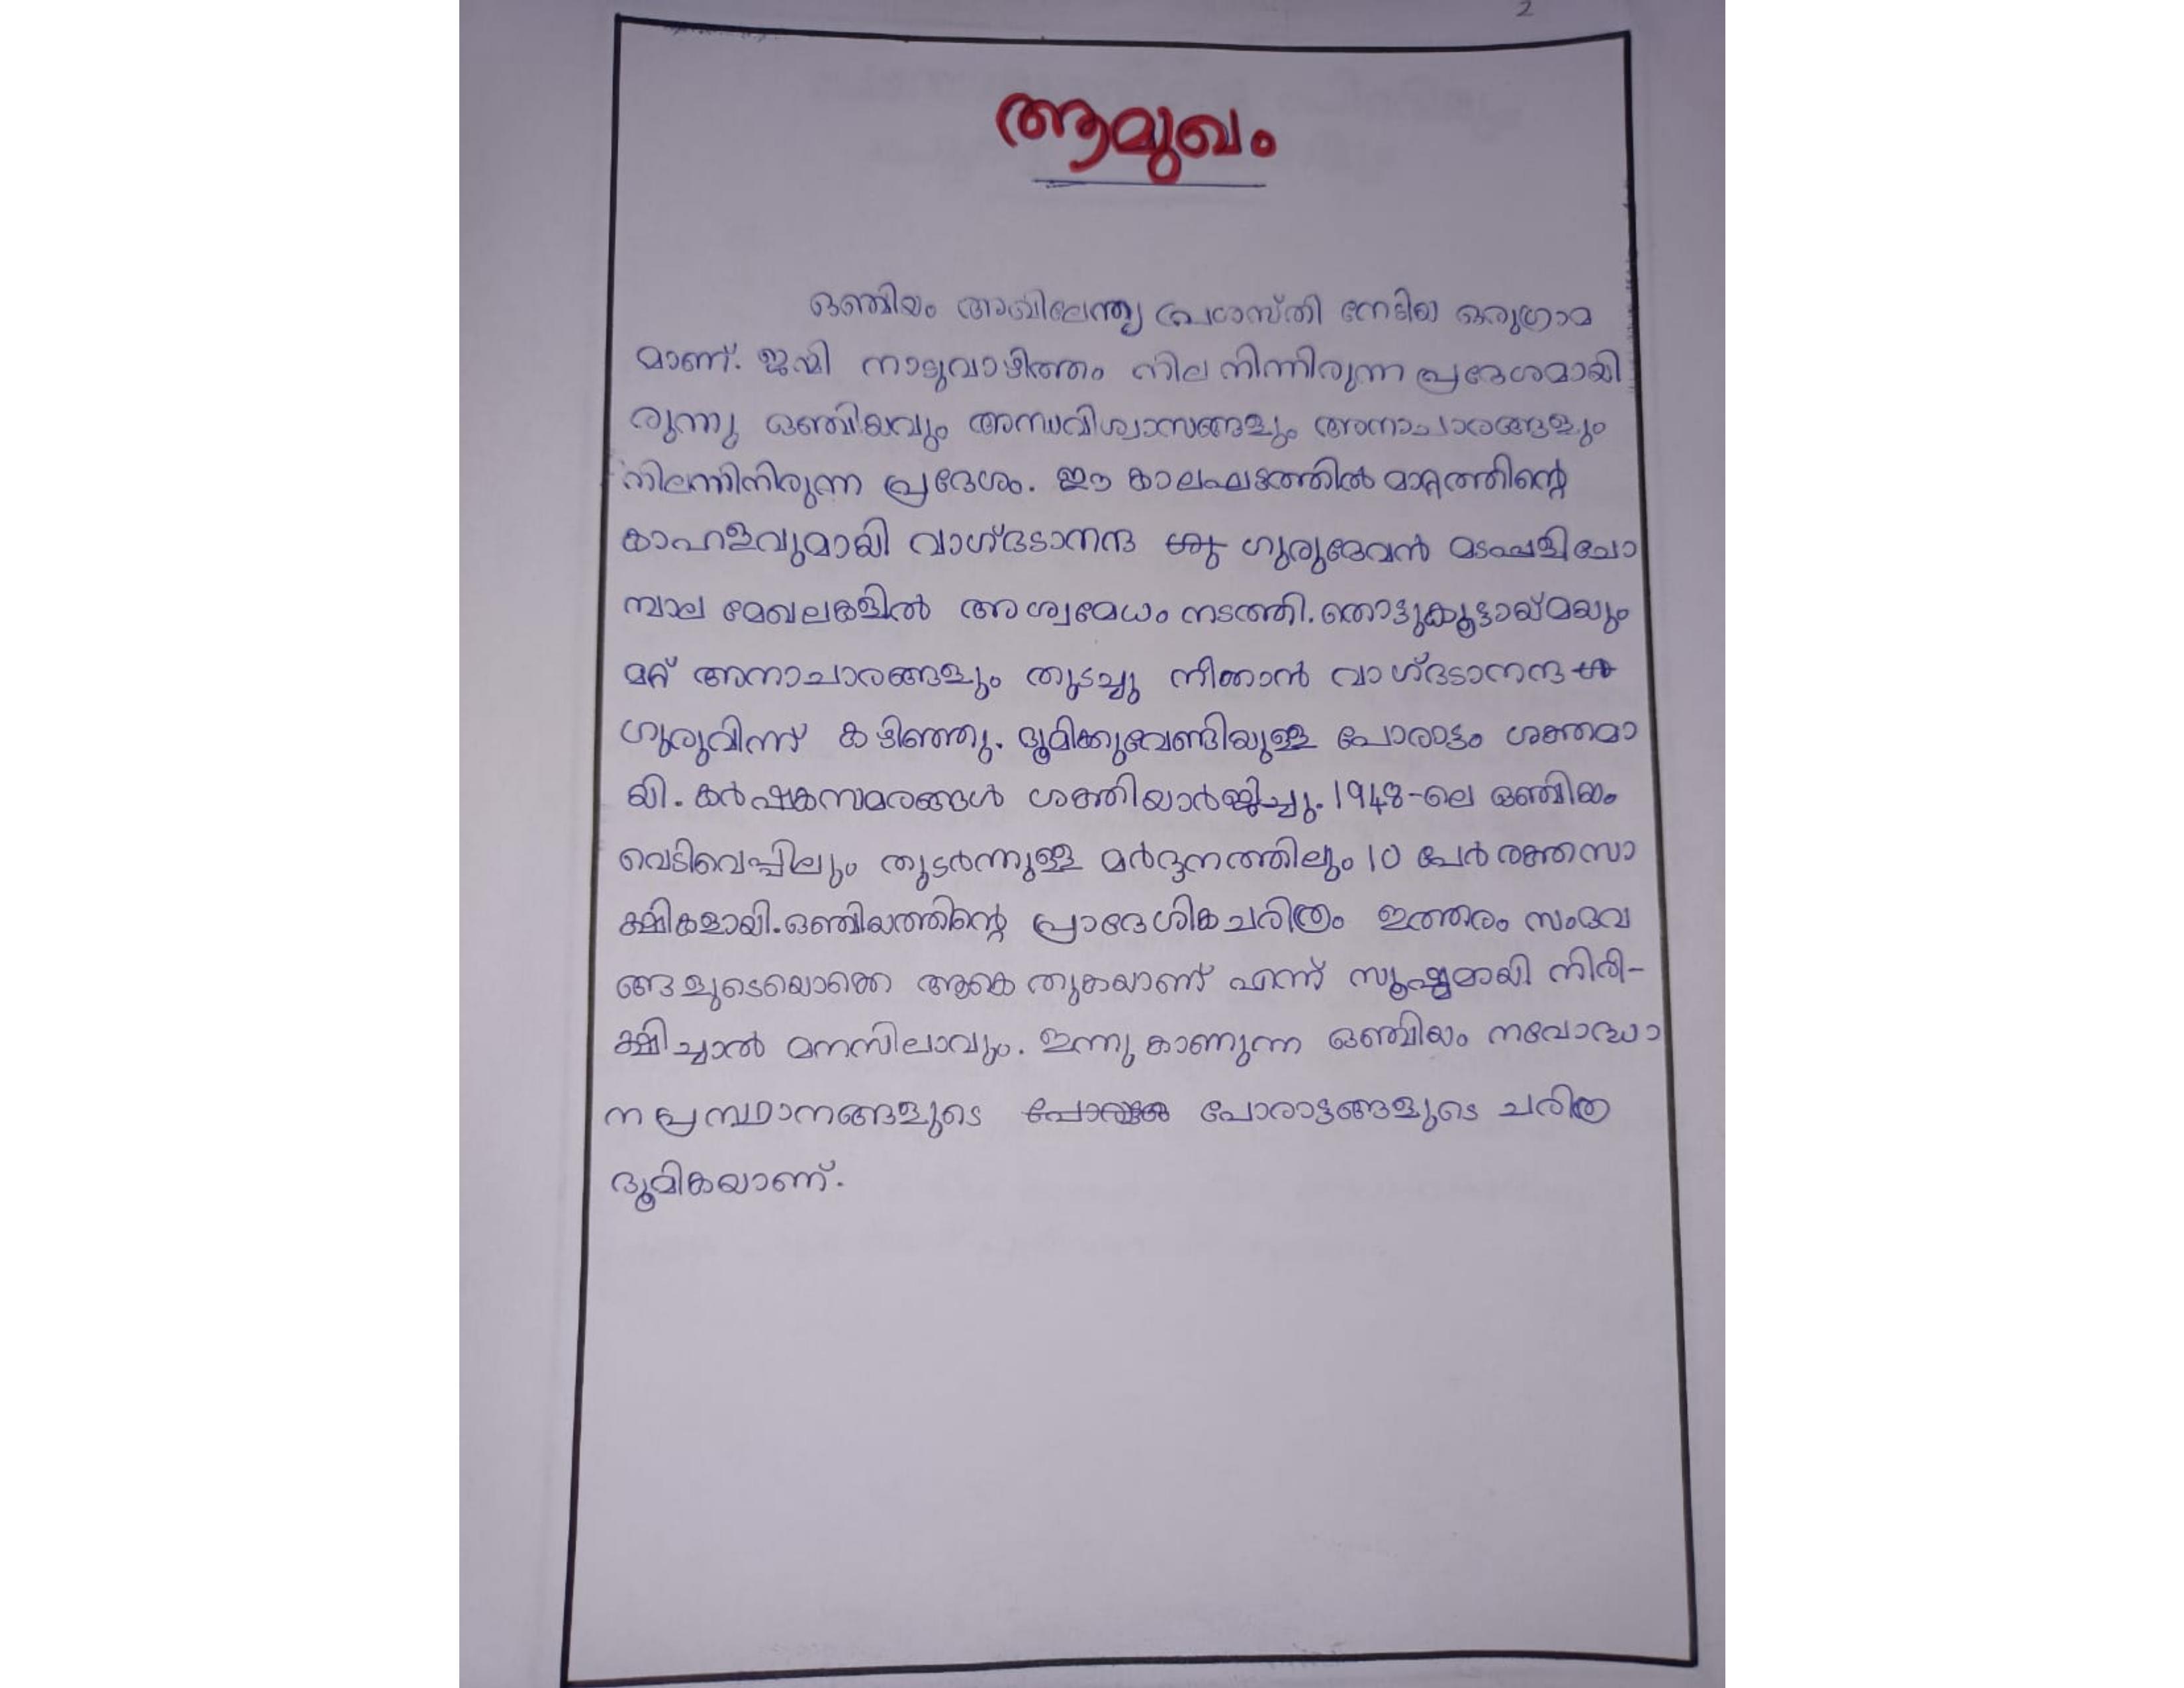 2
ആമുഖം
ഒഞ്ചിയം അഖിലേന്ത്യ പ്രശസ്തി നേടിയ ഒരുഗ്രാമ
മാണ്. ജന്മി നാടുവാഴിത്തം നില നിന്നിരുന്ന പ്രദേശമായി
രുന്നു ഒഞ്ചിയവും അന്ധവിശ്വാസങ്ങളും അനാചാരങ്ങളും
നിലന്നിനിരുന്ന പ്രദേശം. ഈ കാലഘട്ടത്തിൽ മാറ്റത്തിന്റെ
കാഹളവുമായി വാഗ്ഭടാനന്ദ ഗുരുദേവൻ മടപ്പള്ളി ചോ
മ്പാല മേഖലകളിൽ അശ്വമേധം നടത്തി. തൊട്ടുകൂട്ടായ്മയും
മറ്റ് അനാചാരങ്ങളും തുടച്ചു നീക്കാൻ വാഗ്ഭടാനന്ദ
ഗുരുവിന്ന് കഴിഞ്ഞു. ഭൂമിക്കുവേണ്ടിയുള്ള പോരാട്ടം ശക്തമാ
യി. കർഷകസമരങ്ങൾ ശക്തിയാർജ്ജിച്ചു. 1948-ലെ ഒഞ്ചിയം
വെടിവെപ്പിലും തുടർന്നുള്ള മർദ്ദനത്തിലും 10 പേർ രക്തസാ
ക്ഷികളായി. ഒഞ്ചിയത്തിന്റെ പ്രാദേശിക ചരിത്രം ഇത്തരം സംഭവ
ങ്ങളുടെയൊക്കെ ആകെ തുകയാണ് എന്ന് സൂഷ്മമായി നിരി-
ക്ഷിച്ചാൽ മനസിലാവും. ഇന്നു കാണുന്ന ഒഞ്ചിയം നവോദ്ധാ
ന പ്രസ്ഥാനങ്ങളുടെ പോരാട്ടങ്ങളുടെ ചരിത്ര
ഭൂമികയാണ്.